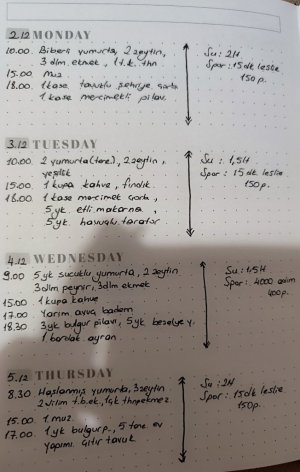 2.12 MONDAY
10.00 Biberli yumurta, 2 zeytin,
3 dlm ekmek, 1 t.k. thn
15.00 muz
18.00 1 kase tavuklu şehriye çorba
1 kase mercimekli pilav.
Su: 2H
Spor: 15 dk leslie
150p.
3.12 TUESDAY
10.00 2 yumurta (tere), 2 zeytin,
yeşillik
15.00 1 kupa kahve, fındık
18.00 1 kase mercimek çorba,
5 yk etli makarna,
5 yk havuçlu tarator
Su: 1,5H
Spor: 15 dk leslie
150p.
4.12 WEDNESDAY
9.00 5 yk sucuklu yumurta, 2 zeytin
3 dlm peynir, 3 dlm ekmek
15.00 1 kupa kahve
17.00 Yarım avuç badem
18.30 3 yk bulgur pilavı, 5 yk bezelye y.
1 bardak ayran.
Su: 1,5H
Spor: 4000 adım
400p.
5.12 THURSDAY
8.30 Haşlanmış yumurta, 3 zeytin
2 dilim t.b.ek,
15.00 1 muz
17.00 1 yk bulgur p., 5 tane ev
yapımı çıtır tavuk
Su: 2H
Spor: 15 dk leslie
150p.